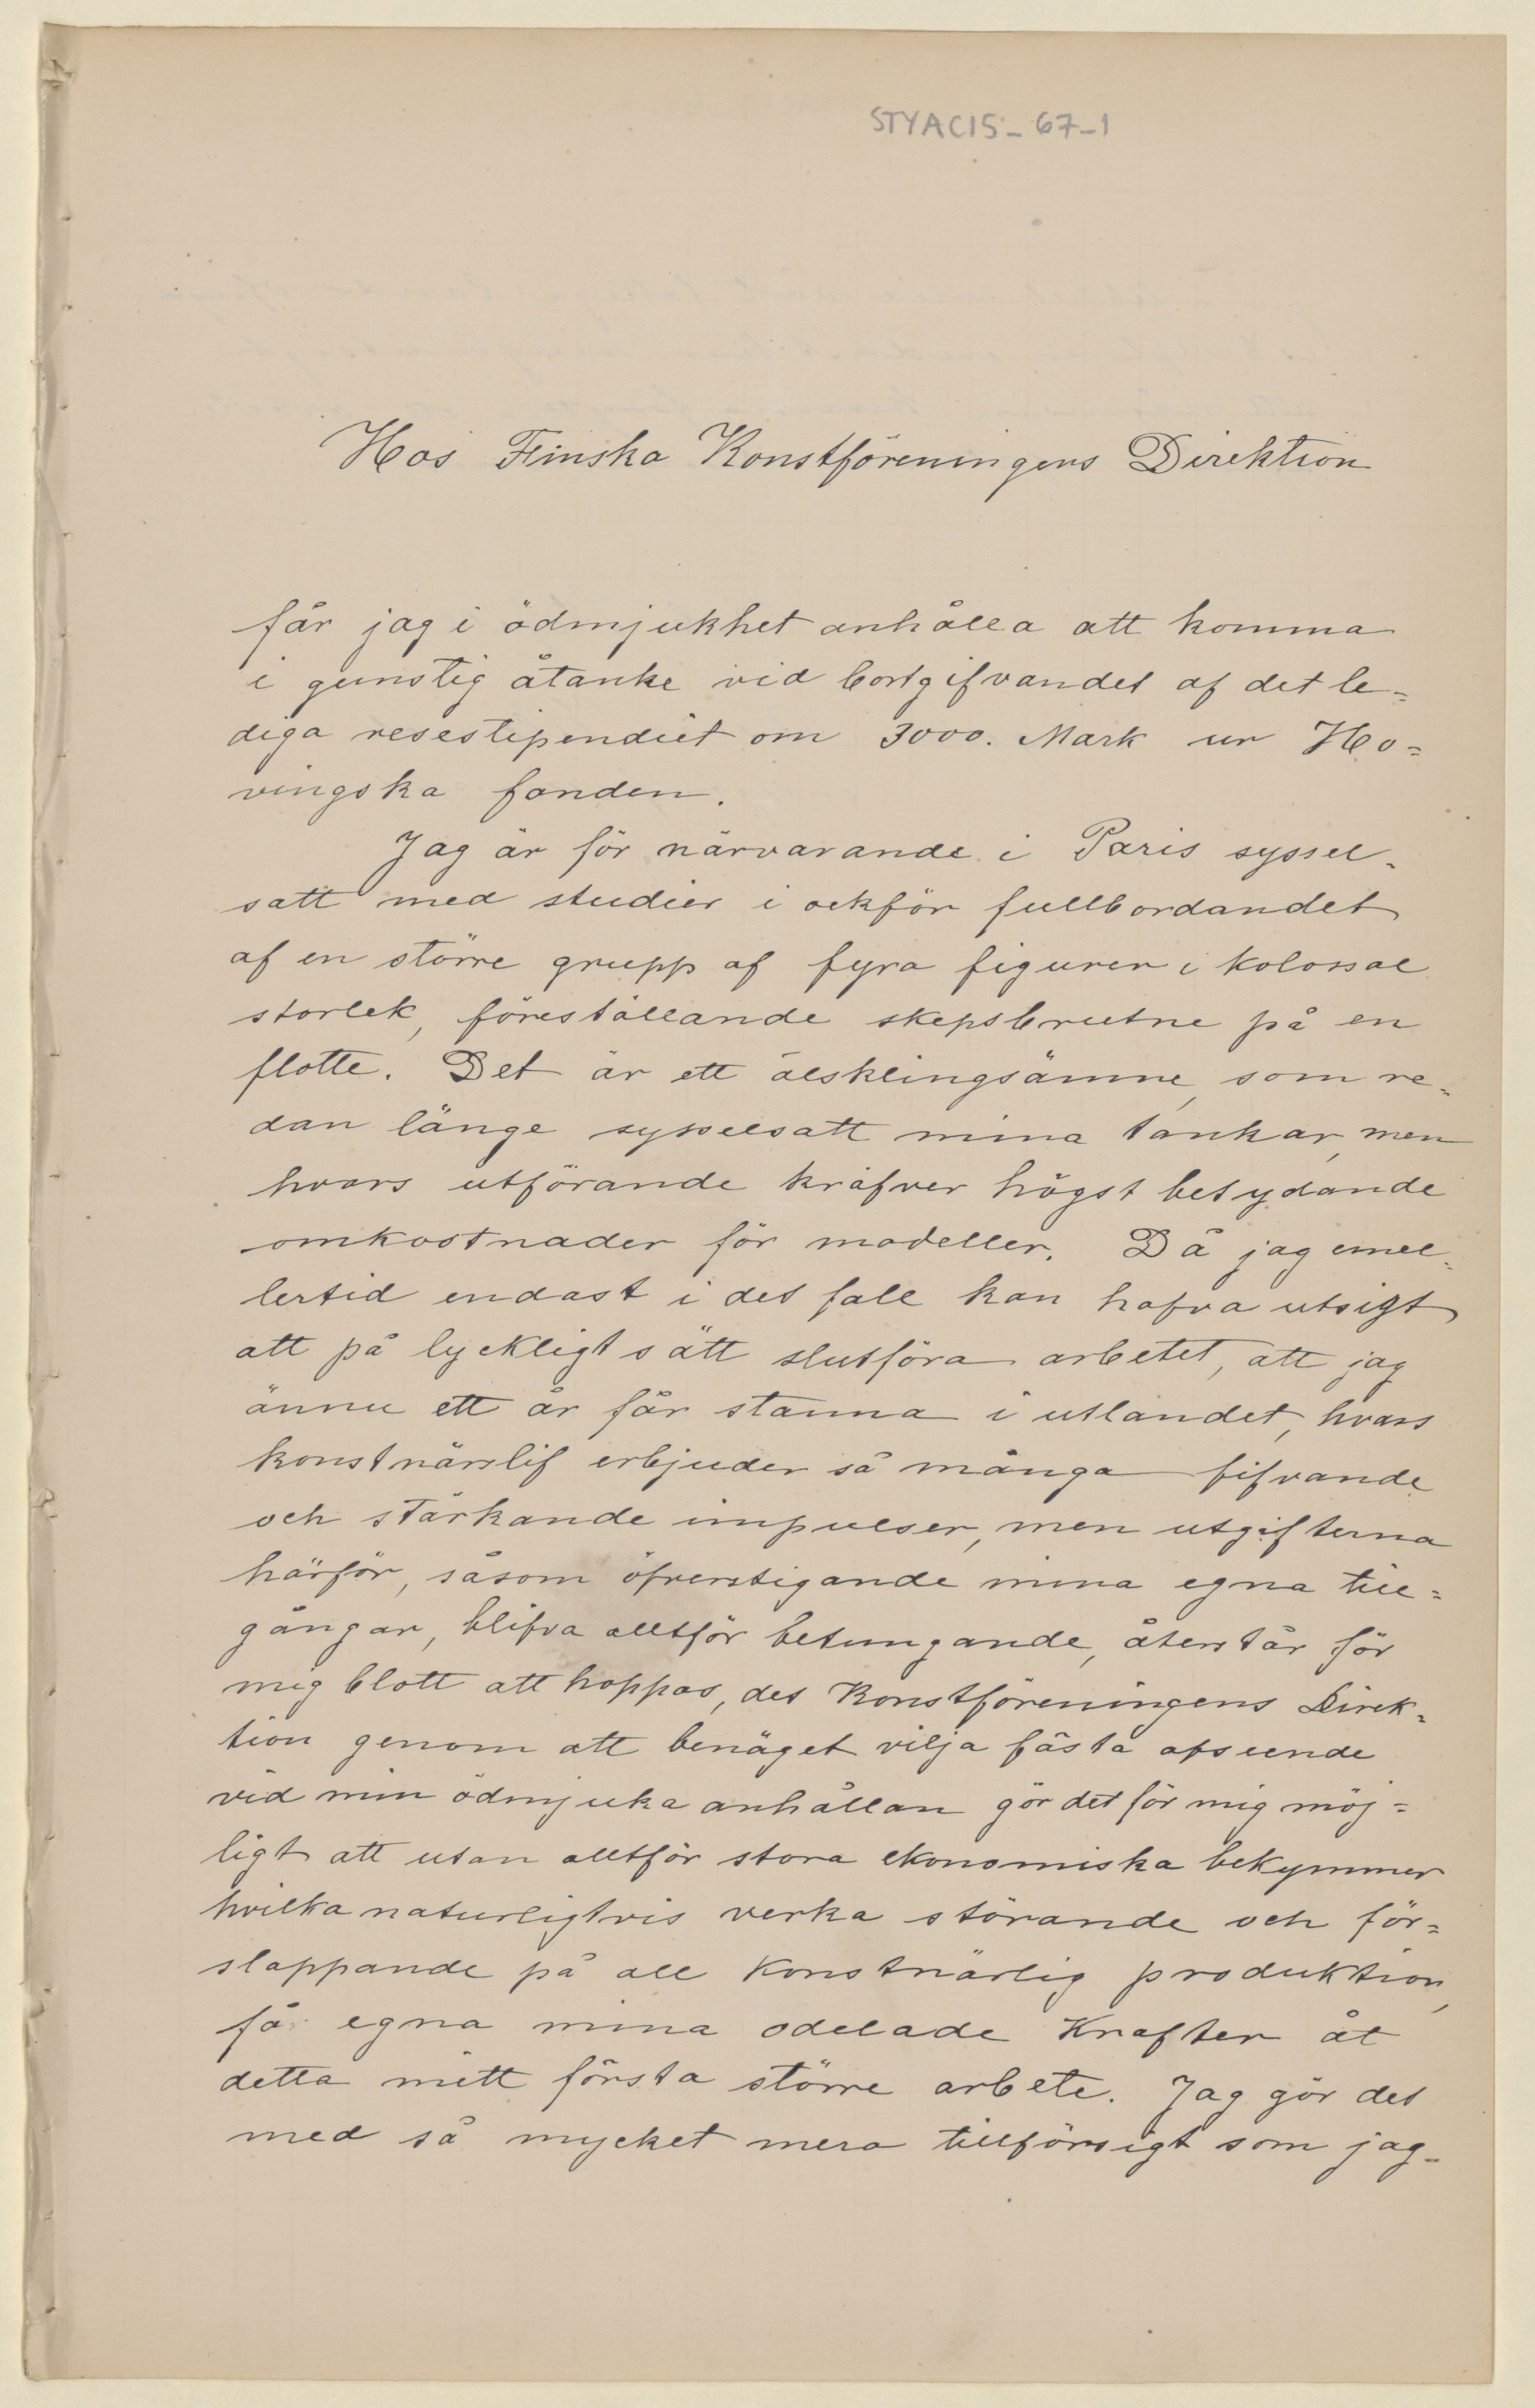 STYAC15-67-1
Hos Finska Konstföreningens Direktion
får jag i ödmjukhet anhålla att komma
i gunstig åtanke vid bortgifvandet af det le=
diga resestipendiet om 3000. Mark ur Ho=
vingska fonden.
Jag är för närvarande i Paris syssel-
satt med studier i ockför fullbordandet
af en större grupp af fyra figurer i kolossal
storlek, föreställande skepsbrutne på en
flotte. Det är ett älsklingsämne, som re=
dan länge sysselsatt mina tankar, men
hvars utförande kräfver högst betydande
omkostnader för modeller. Då jag emel=
lertid endast i det fall kan hafva utsigt
att på lyckligt sätt slutföra arbetet, att jag
ännu ett år får stanna i utlandet, hvars
konstnärslif erbjuder så många fifvande
och stärkande impulser, men utgifterna
härför, såsom öfverstigande mina egna till=
gångar, blifva alltför betungande, återstår för
mig blott att hoppas, det Konstföreningens Direk=
tion genom att benäget vilja fästa afseende
vid min ödmjuka anhållan gör det för mig möj=
ligt att utan alltför stora ekonomiska bekymmer
hvilka naturligtvis verka störande och för=
slappande på all konstnärlig produktion,
få egna mina odelade Krafter åt
detta mitt första större arbete. Jag gör det
med så mycket mera tillförsigt som jag-